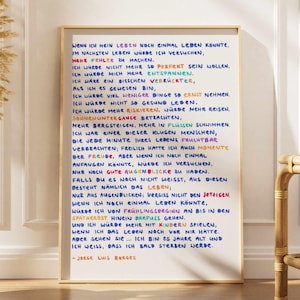 WENN ICH MEIN LEBEN NOCH EINMAL LEBEN KÖNNTE,
IM NÄCHSTEN LEBEN WÜRDE ICH VERSUCHEN,
MEHR FEHLER ZU MACHEN.
ICH WÜRDE NICHT MEHR SO PERFEKT SEIN WOLLEN,
ICH WÜRDE MICH MEHR ENTSPANNEN.
ICH WÄRE EIN BISSCHEN VERRÜCKTER,
ALS ICH ES GEWESEN BIN,
ICH WÜRDE VIEL WENIGER DINGE SO ERNST NEHMEN.
ICH WÜRDE NICHT SO GESUND LEBEN.
ICH WÜRDE MEHR RISKIEREN, WÜRDE MEHR REISEN,
SONNENUNTERGÄNGE BETRACHTEN,
MEHR BERGSTEIGEN, MEHR IN FLÜSSEN SCHWIMMEN.
ICH WAR EINER DIESER KLUGEN MENSCHEN,
DIE JEDE MINUTE IHRES LEBENS FRUCHTBAR
VERBRACHTEN; FREILICH HATTE ICH AUCH MOMENTE
DER FREUDE, ABER WENN ICH NOCH EINMAL
ANFANGEN KÖNNTE, WÜRDE ICH VERSUCHEN,
NUR NOCH GUTE AUGENBLICKE ZU HABEN.
FALLS DU ES NOCH NICHT WEISST, AUS DIESEN
BESTEHT NÄMLICH DAS LEBEN;
NUR AUS AUGENBLICKEN; VERGISS NICHT DEN JETZIGEN.
WENN ICH NOCH EINMAL LEBEN KÖNNTE,
WÜRDE ICH VON FRÜHLINGSBEGINN AN BIS IN DEN
SPÄTHERBST HINEIN BARFUSS GEHEN.
UND ICH WÜRDE MEHR MIT KINDERN SPIELEN,
WENN ICH DAS LEBEN NOCH VOR MIR HÄTTE.
ABER SEHEN SIE ... ICH BIN 85 JAHRE ALT UND
ICH WEISS, DASS ICH BALD STERBEN WERDE.
- JORGE LUIS BORGES